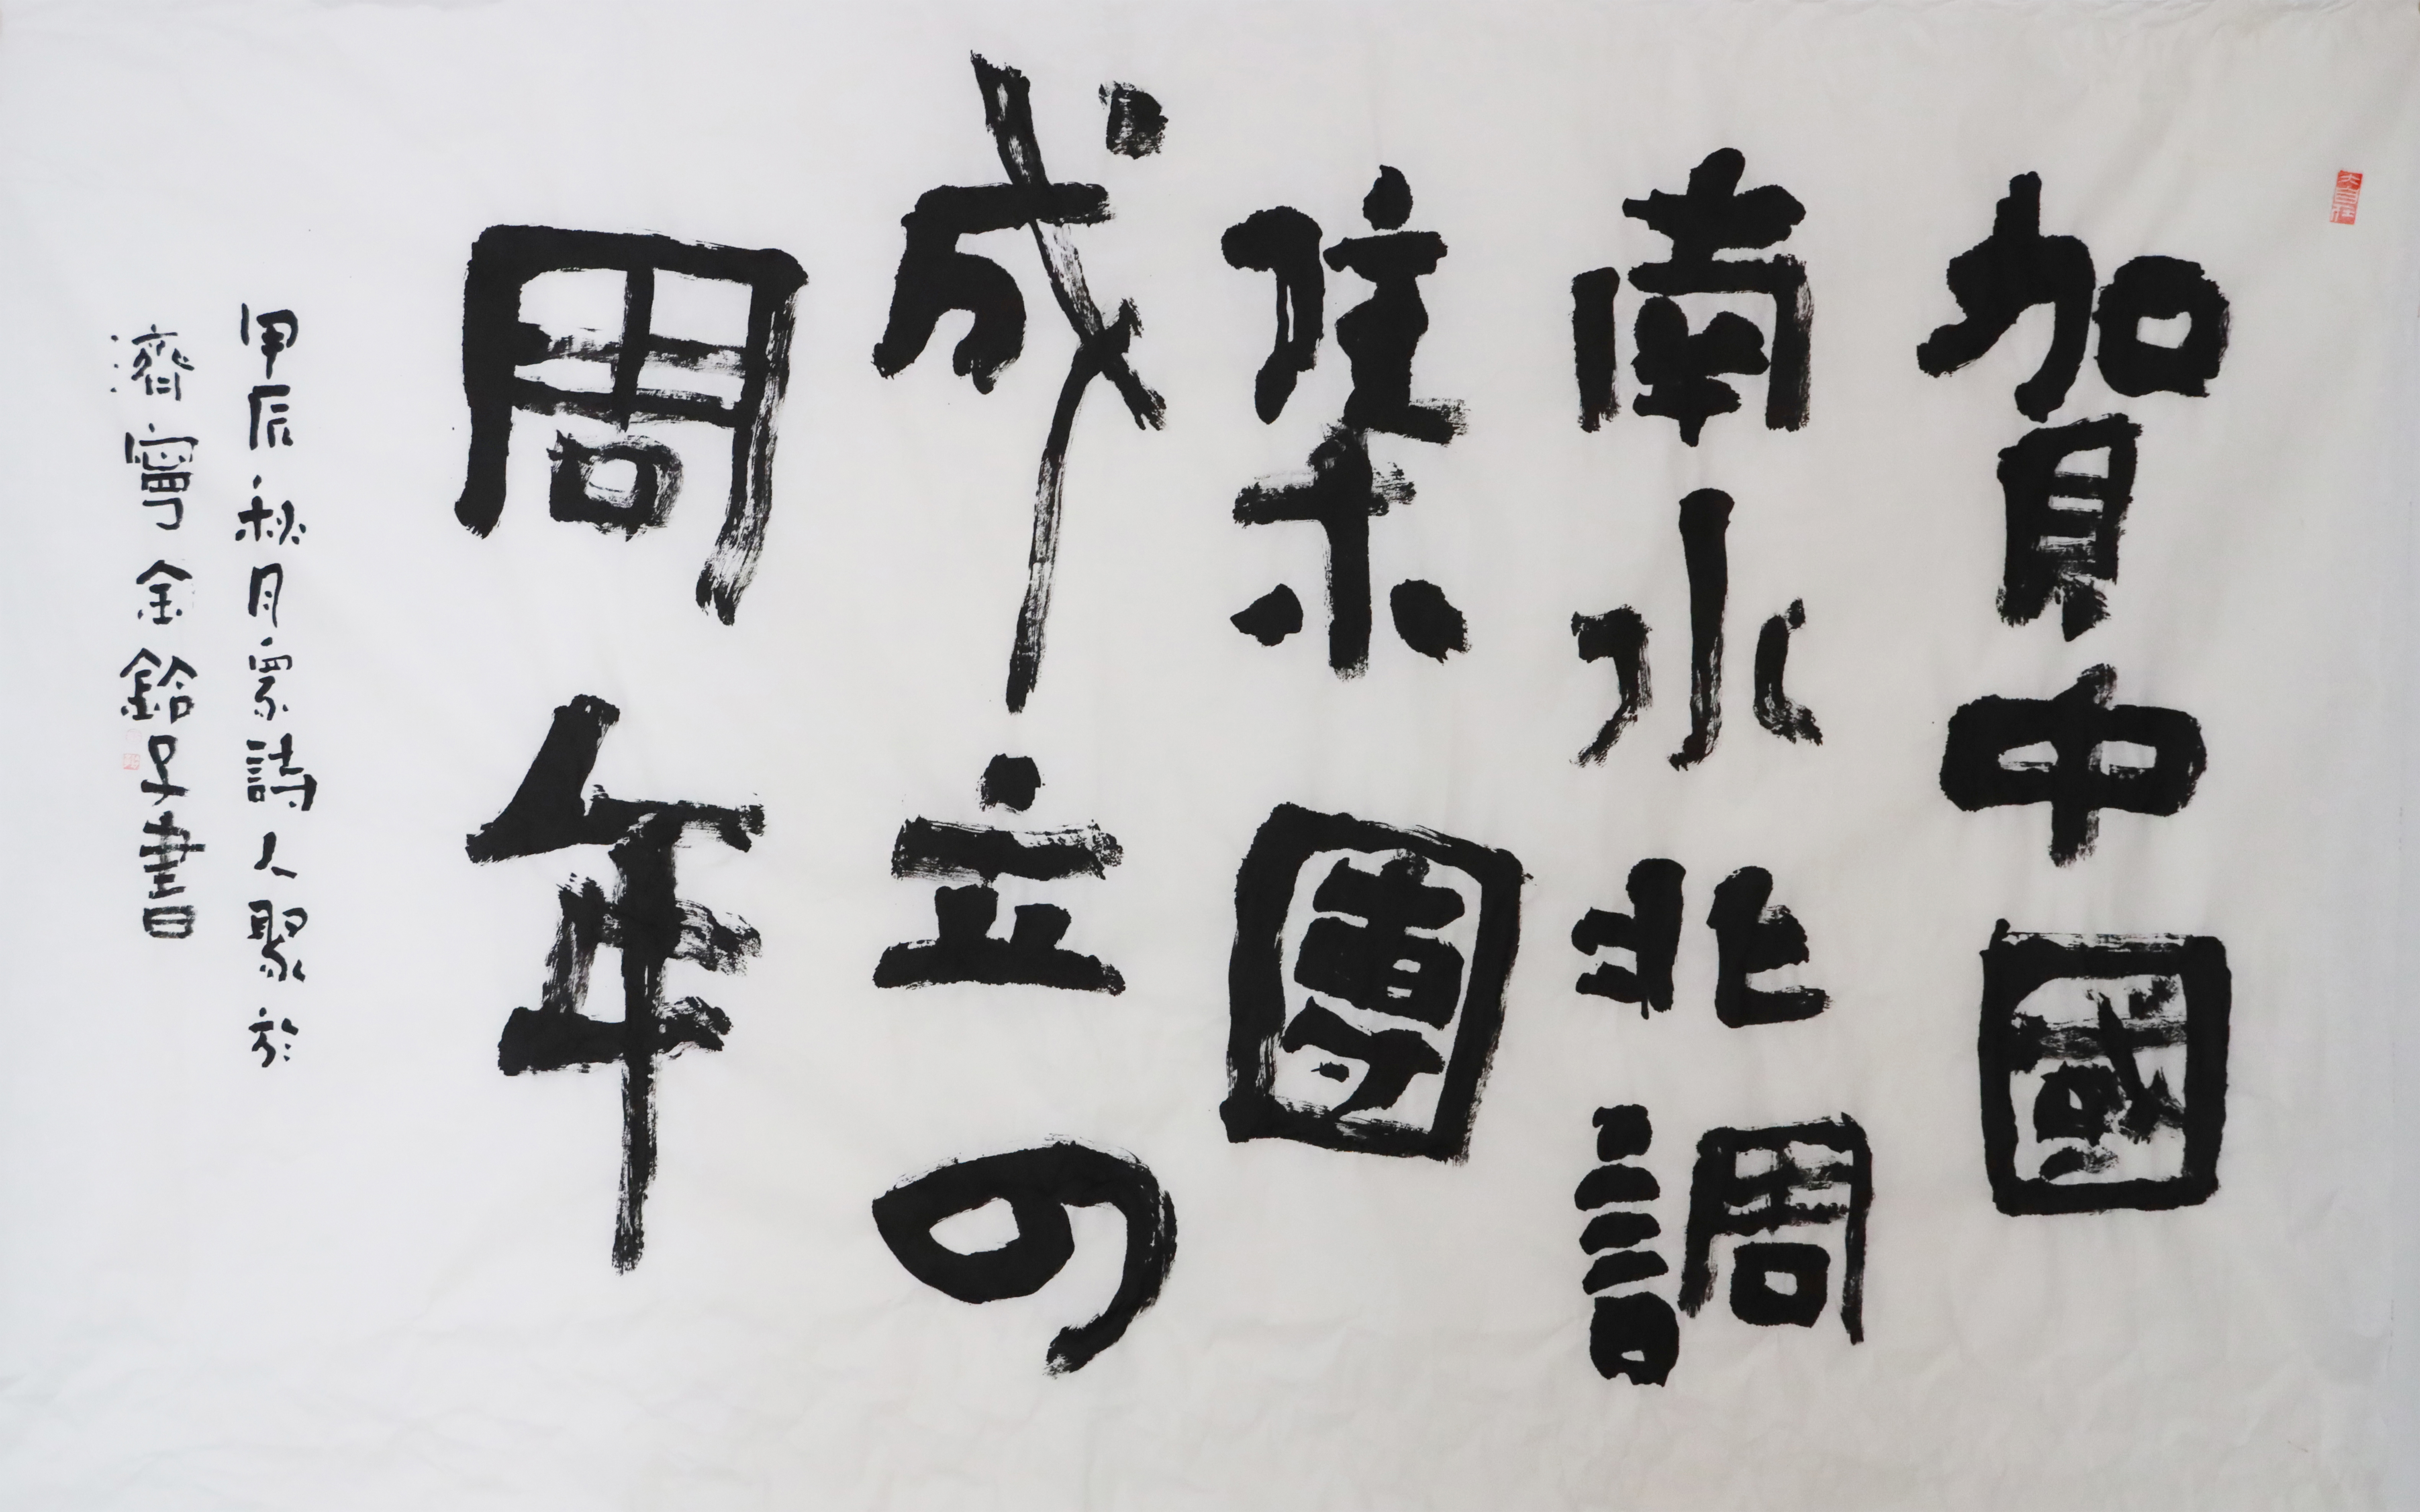 賀中國
南水北調
集團
成立四
周年
甲辰秋月眾詩人聚於
濟寧金鈴子書